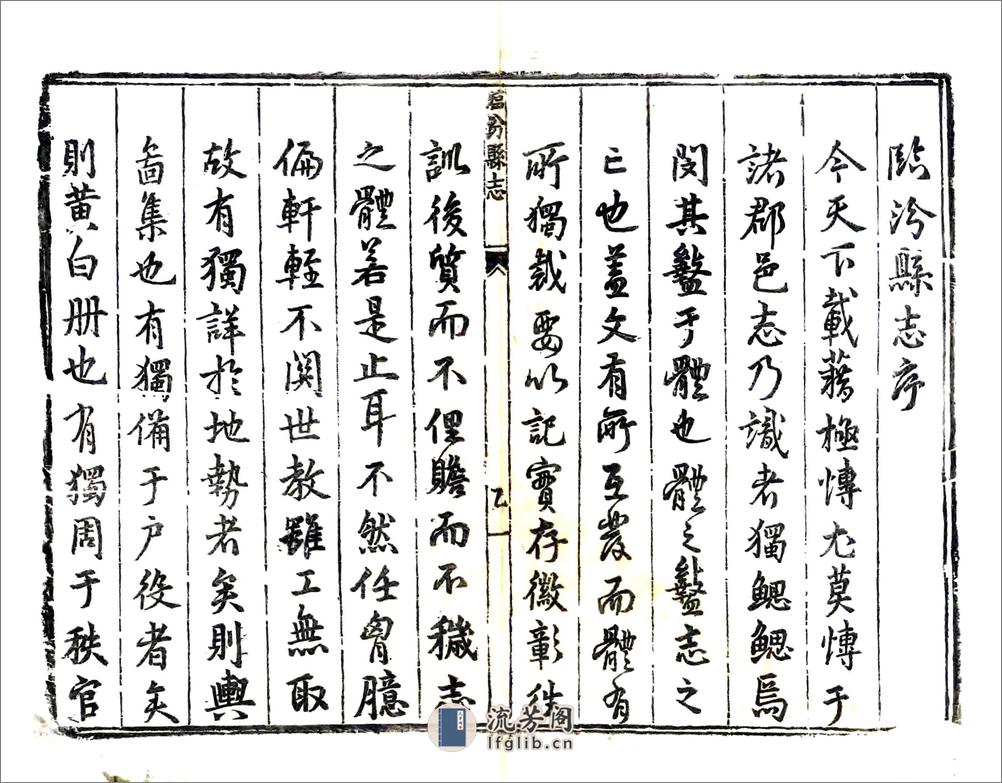 臨汾縣志序
今天下載藉極慱尤莫慱于
諸郡邑志乃識者獨鰓鰓焉
閔其盭于體也體之盭志之
亡也蓋文有所互發而體有
所獨裁要以記實存徵彰徃
臨汾縣志
乙一
訓後質而不俚贍而不穢志
之體若是止耳不然任胷臆
偏軒輊不関世教雖工無取
故有獨詳於地勢者矣則輿
啚集也有獨備于户役者矣
則黃白册也有獨周于秩官
流芳阁
lfglib.cn